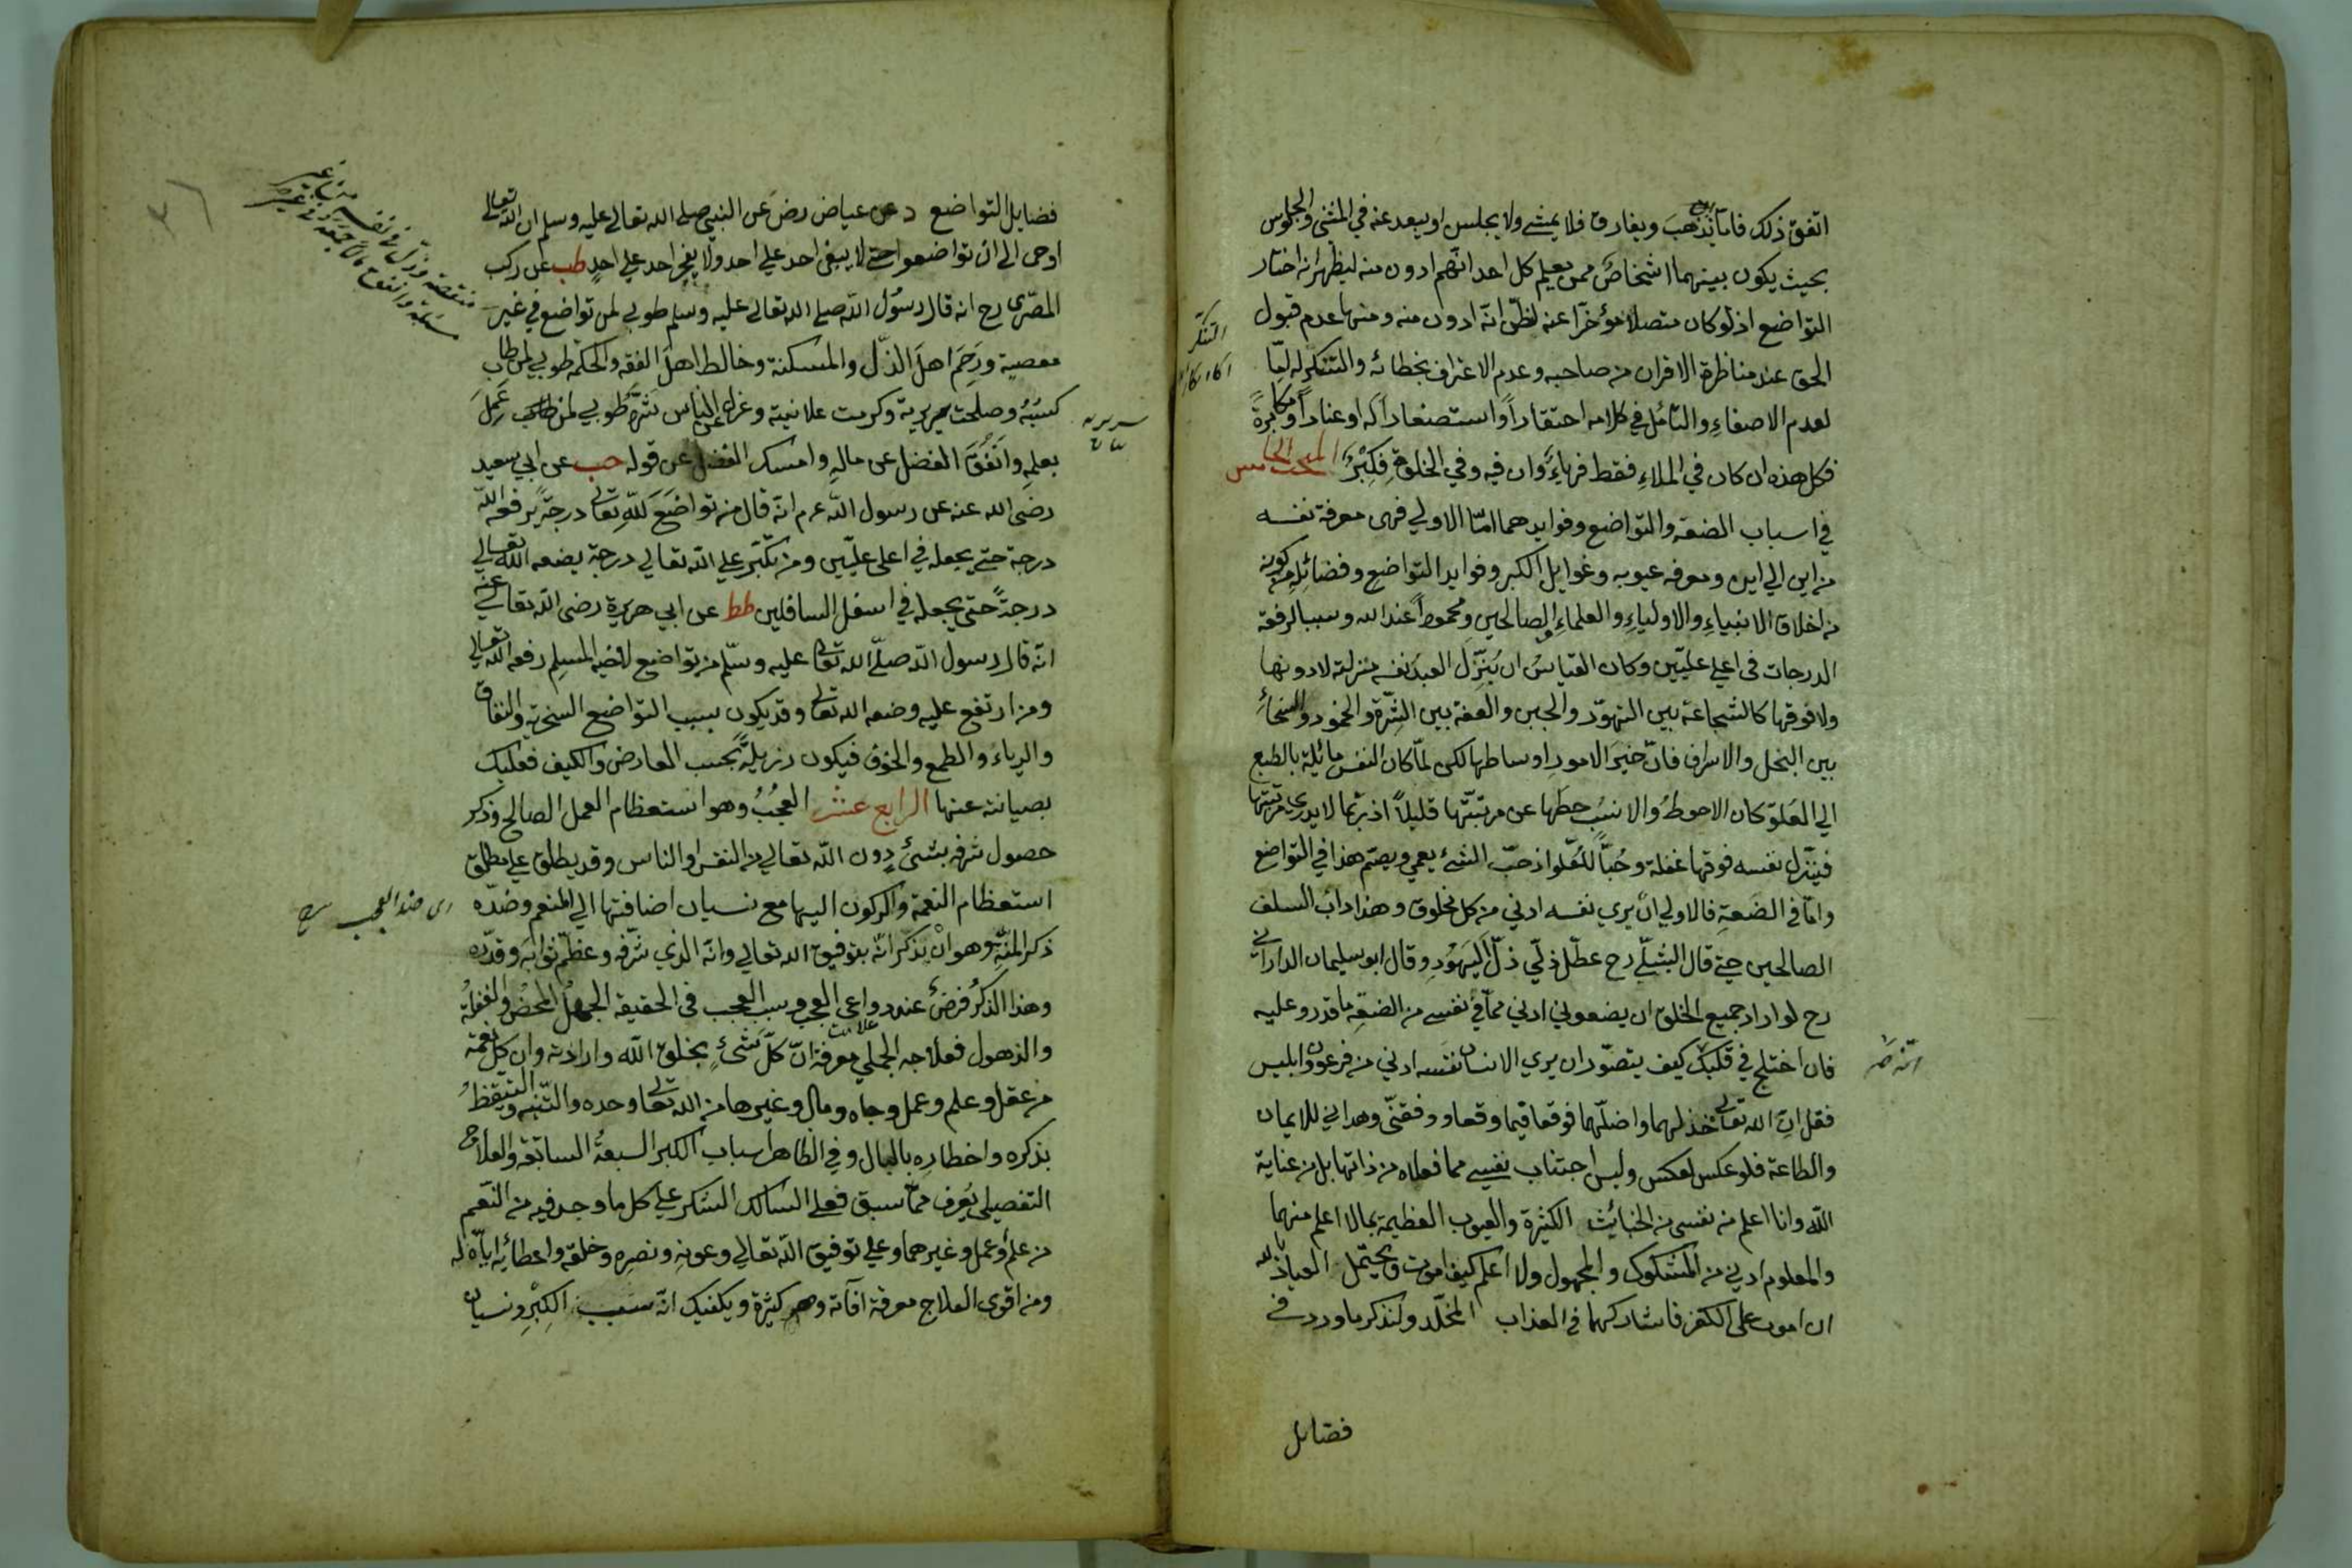 اتفق ذلك فاما يذهب ويفارق فلا يمشي ولا يجلس او يبعد عنه في المشي والجلوس
بحيث يكون بينهما اشخاص ممن يعلم كل احد انهم ادون منه ليظهر انه اختار
التواضع اذ لو كان متصلا مؤخرا عنه لظن انه ادون منه ومنها عدم قبول
الحق عند مناظرة الاقران من صاحبه وعدم الاعتراف بخطائه والتشكر له
لعدم الاصغاء والتأمل في كلامه احتقارا واستصغارا له او عنادا ومكابرة
فكل هذه ان كان في الملاء فقط فرياء وان فيه وفي الخلوة فكبر المبحث الخامس
في اسباب الضعة والتواضع وفوايدهما اما الاولي فهي معرفة نفسه
من اين الي اين ومعرفة عيوبه وغوايل الكبر وفوايد التواضع وفضائله من كونه
من اخلاق الانبياء والاولياء والعلماء والصالحين ومحمودا عند الله وسببا لرفعة
الدرجات في اعلي عليين وكان القياس ان ينزل العبد نفسه منزلته لا دونها
ولا فوقها كالشجاعة بين التهور والجبن والعفة بين الشره والخمود والسخاء
بين البخل والاسراف فان خير الامور اوساطها لكن لما كان النفس مائلة بالطبع
الي العلو كان الاحوط والانسب حطها عن مرتبتها قليلا اذ ربما لا يدري مرتبتها
فينزل نفسه فوقها غفلة وحبا للعلو اذ حب الشئ يعمي ويصم هذا في التواضع
واما في الضعة فالاولي ان يري نفسه ادني من كل مخلوق وهذا دأب السلف
الصالحين حتي قال الشبلي رح عطل ذلي ذل اليهود وقال ابو سليمان الداراني
رح لو اراد جميع الخلق ان يضعوني ادني مما في نفسي من الضعة ما قدروا عليه
فان اختلج في قلبك كيف يتصور ان يري الانسان نفسه ادني من فرعون وابليس
فقل ان الله تعالى خذلهما واضلهما فوقعا فيما وقعا ووفقني وهداني للايمان
والطاعة فلو عكس لعكس وليس اجتناب نفسي مما فعلاه من ذاتها بل من عناية
الله وانا اعلم من نفسي من الخبائث الكثيرة والعيوب العظيمة بما لا اعلم منهما
والمعلوم ادني من المشكوك والمجهول ولا اعلم كيف اموت ويحتمل العياذ بالله
ان اموت على الكفر فاشاركهما في العذاب المخلد ولنذكر ما ورد في
فضايل
التشكر
فضايل التواضع د عن عياض رض عن النبي صلى الله تعالى عليه وسلم ان الله تعالى
اوحى الي ان تواضعوا حتي لا يبغى احد علي احد ولا يفخر احد علي احد طب عن ركب
المصري رح انه قال رسول الله صلى الله تعالى عليه وسلم طوبي لمن تواضع في غير
معصية ورحم اهل الذل والمسكنة وخالط اهل الفقه والحكمة طوبي لمن طاب
كسبه وصلحت سريرته وكرمت علانيته وعزل عن الناس شره طوبي لمن عمل
بعلمه وانفق الفضل من ماله وامسك الفضل من قوله حب عن ابي سعيد
رضى الله عنه عن رسول الله عم انه قال من تواضع لله تعالى درجة يرفعه الله
درجة حتي يجعله في اعلى عليين ومن تكبر علي الله تعالي درجة يضعه الله تعالي
درجة حتى يجعله في اسفل السافلين طط عن ابي هريرة رضى الله تعالى عنه
انه قال رسول الله صلى الله تعالى عليه وسلم من تواضع لاخيه المسلم رفعه الله تعالي
ومن ارتفع عليه وضعه الله تعالى وقد يكون بسبب التواضع السخرية والنفاق
والرياء والطمع والخوف فيكون رزيلة بحسب المعارض والكيف فعليك
بصيانته عنها الرابع عشر العجب وهو استعظام العمل الصالح وذكر
حصول شرفه بشئ دون الله تعالي من النفس او الناس وقد يطلق علي مطلق
استعظام النعمة والركون اليها مع نسيان اضافتها الي المنعم وضده
ذكر المنة وهو ان يذكر انه بتوفيق الله تعالي وانه الذي شرفه وعظم ثوابه وقدره
وهذا الذكر فرض عند دواعي العجب وسبب العجب في الحقيقة الجهل المحض والغفلة
والذهول فعلاجه الجملي معرفة ان كل شئ بخلق الله وارادته وان كل نعمة
من عقل وعلم وعمل وجاه ومال وغيرها من الله تعالى وحده والتنبه والتيقظ
بذكره واخطاره بالبال وفي الظاهر اسباب الكبر السبعة السابقة والعلاج
التفصيلي يعرف مما سبق فعلي السالك الشكر علي كل ما وجد فيه من النعم
من علم وعمل وغيرهما وعلي توفيق الله تعالي وعونه ونصره وخلقه واعطائه اياه له
ومن اقوى العلاج معرفة آفاته وهي كثيرة ويكفيك انه سبب الكبر ونسيان
سريرته
اى ضد العجب
٣٦